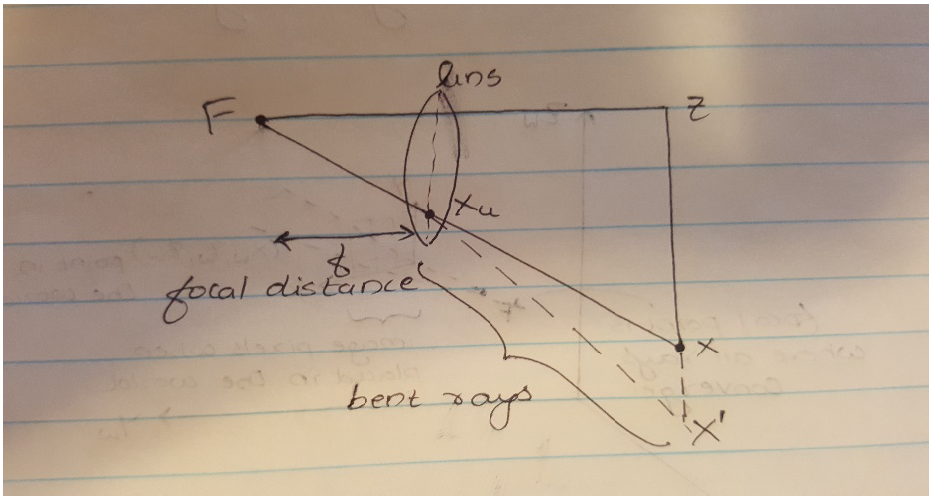 lens
F
Z
Xu
f
focal distance
bent rays
X
X'